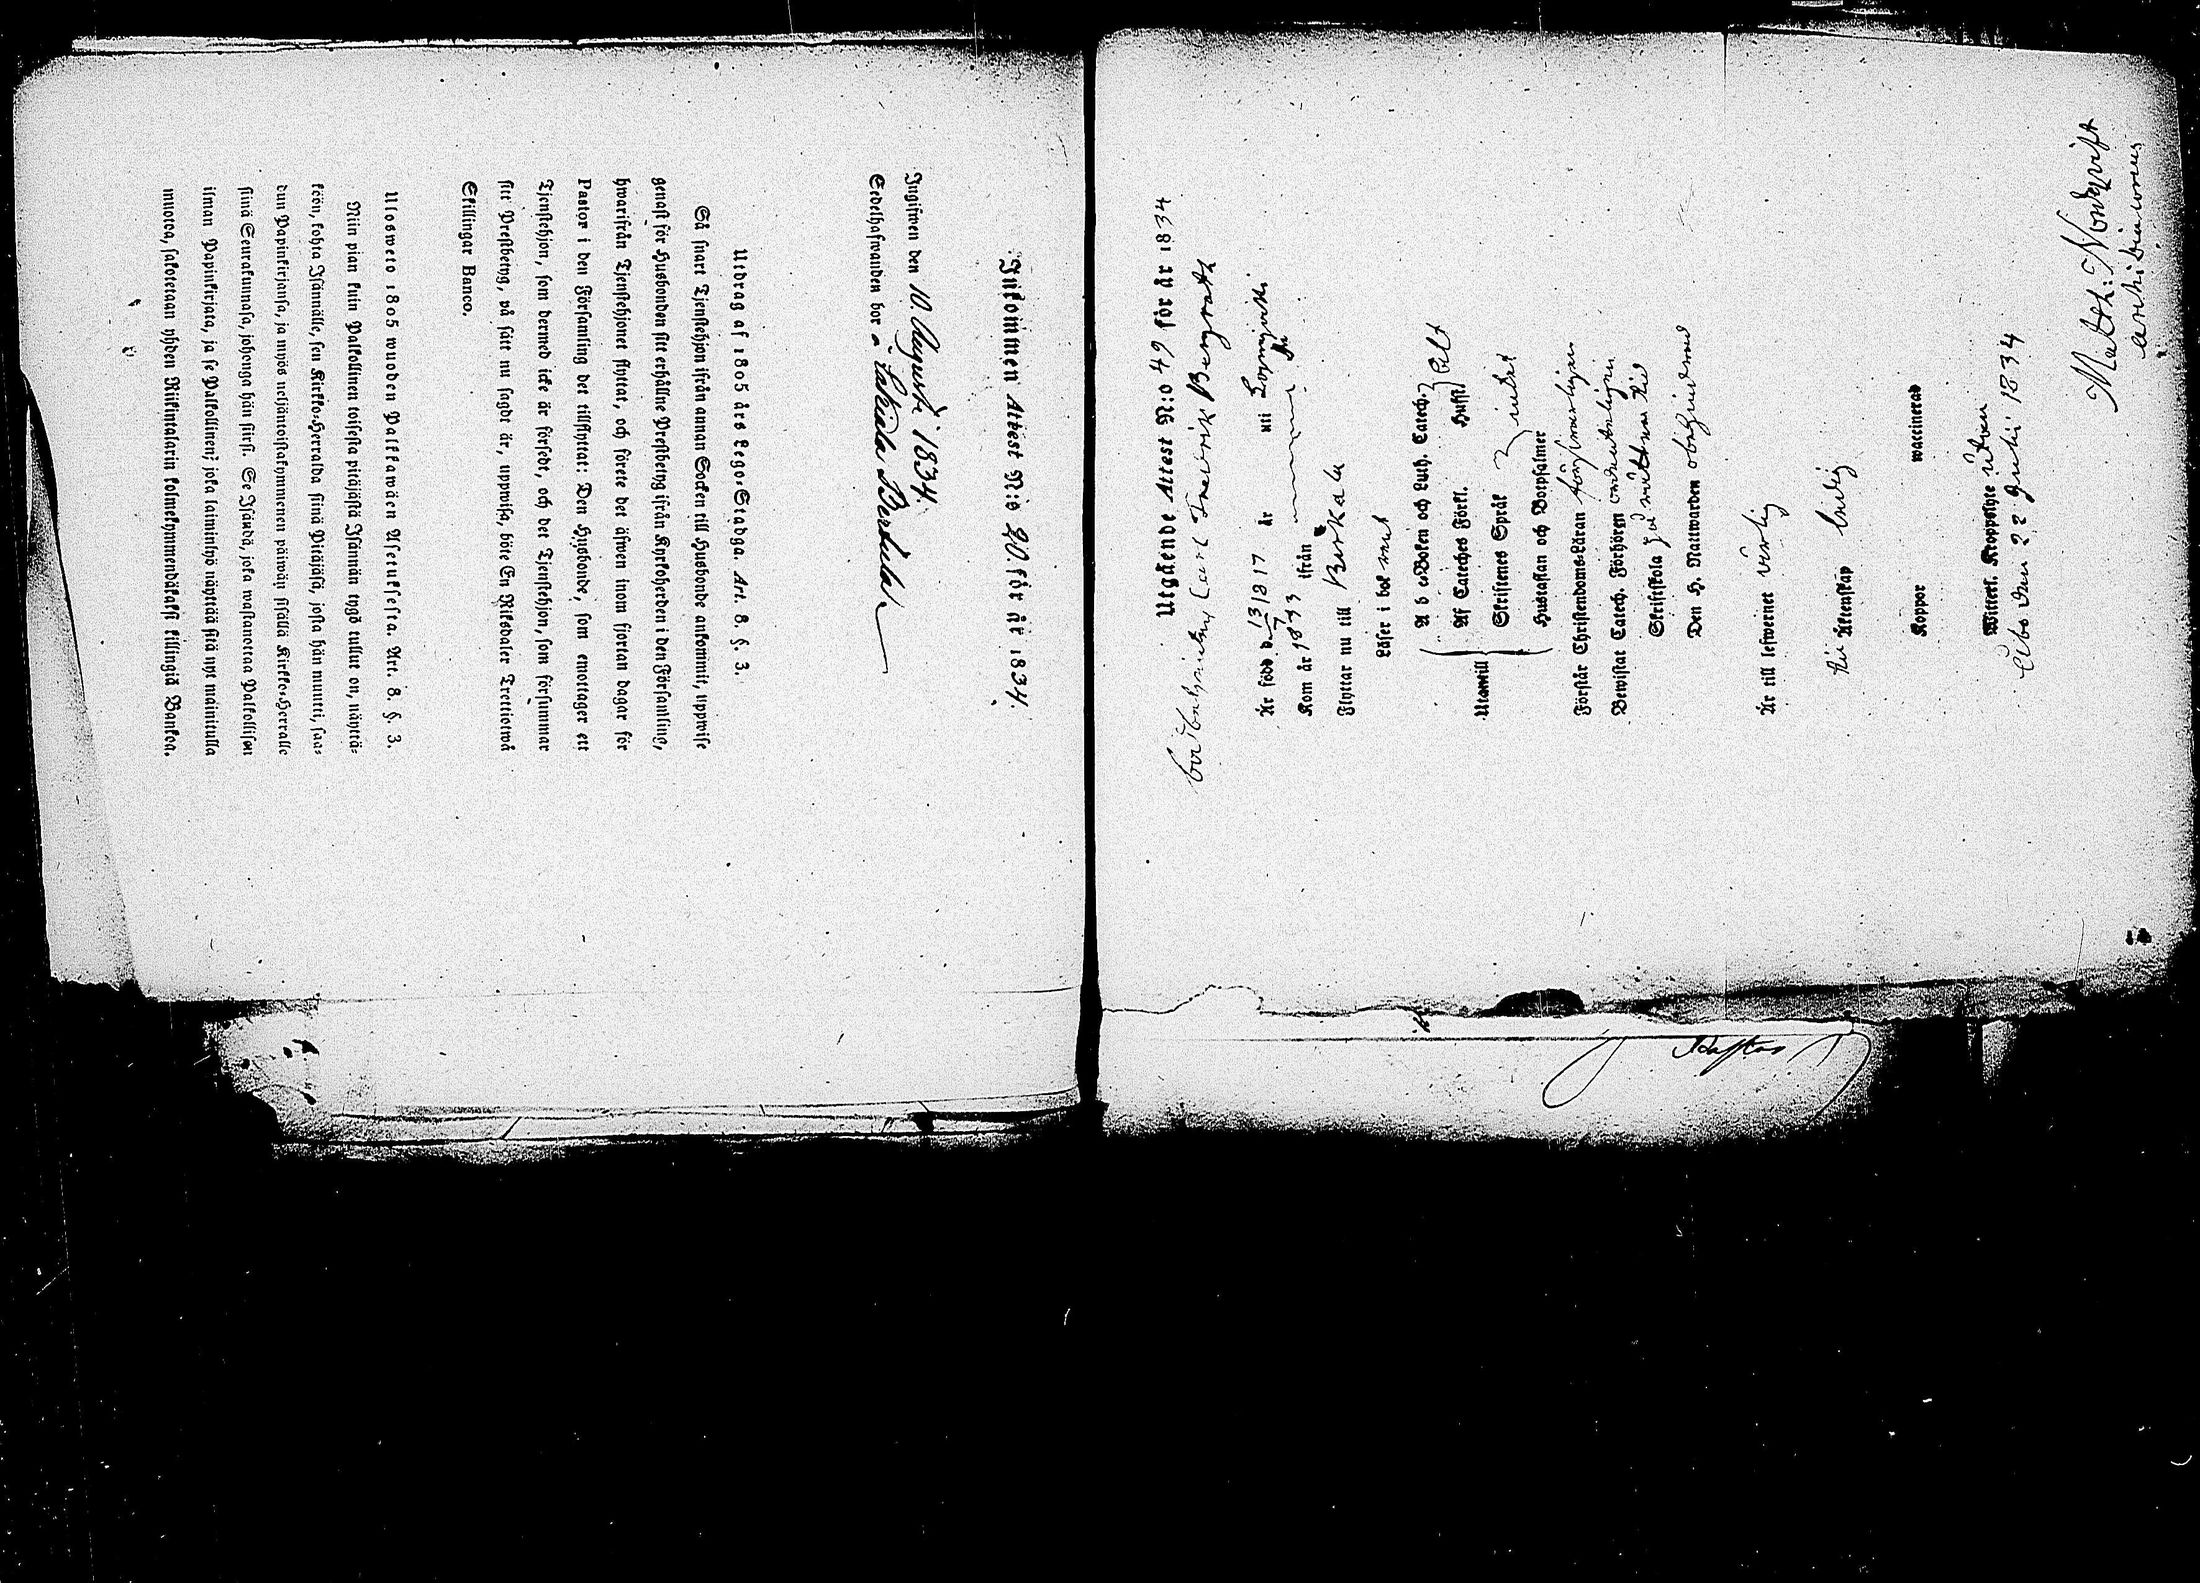 Inkommen Attest N:o 20. för år 1834.
Ingifwen den 10. Augusti 1834.
Sedelhafwanden bor i Lakiala Berdula
Utdrag af 1805 års Lego-Stadga. Art. 8. §. 3.
Så snart Tjenstehjon ifrån annan Socken till Husbonde ankommit, uppwise
genast för Husbonden sitt erhållne Prestbetyg ifrån Kyrkoherden i den Församling,
hwarifrån Tjenstehjonet flyttat, och förete det äfwen inom fjortan dagar för
Pastor i den Församling det tillflyttat: Den Husbonde, som emottager ett
Tjenstehjon, som dermed icke är försedt, och det Tjenstehjon, som försummar
sitt Prestbetyg, på sätt nu sagdt är, uppwisa, böte En Riksdaler Trettiotwå
Skillingar Banco.
Ulosweto 1805 wuoden Palkkawäen Asetuksesta. Art. 8. §. 3.
Niin pian kuin Palkollinen toisesta pitäjästä Isännän tygö tullut on, näyttä-
köön, kohta Isännälle, sen Kirkko-Herralda siinä Pitäjäsä, josta hän muutti, saa-
dun Papinkirjansa, ja myös neljäntoistakymmenen päiwän sisällä Kirkko-Herralle
siinä Seurakunnasa, johonga hän siirsi. Se Isändä, joka wastanottaa Palkollisen
ilman Papinkirjata, ja se Palkollinen, joka laiminlyö näyttää sitä nyt mainitulla
muotoa, sakotetaan yhden Riikintalarin kolmekymmendäkaksi killingiä Bankoa.
Utgående Attest N:o 49 för år 1834
Carl Fredrik Bengrath
Är född d. 13/7 1817 år uti
Kom år 1833 ifrån
Flyttar nu till Birkala
Läser i bok
A b c Boken och Luth. Catech.
Af Cateches Förkl. Hufst
Utantill Skriftenes Språk
Hustaflan och Botpsalmer
Förstår Christendoms-Läran försvarligen
Bewistat Catech. Förhören ordentligen
Skriftskola
Den H. Nattwarden
Är till lefwernet
Äktenskap ledig
Koppor waccinerad
Witterl. Kroppslyte utan
Åbo den 22 Julii 1834
Matth: Nordqvist